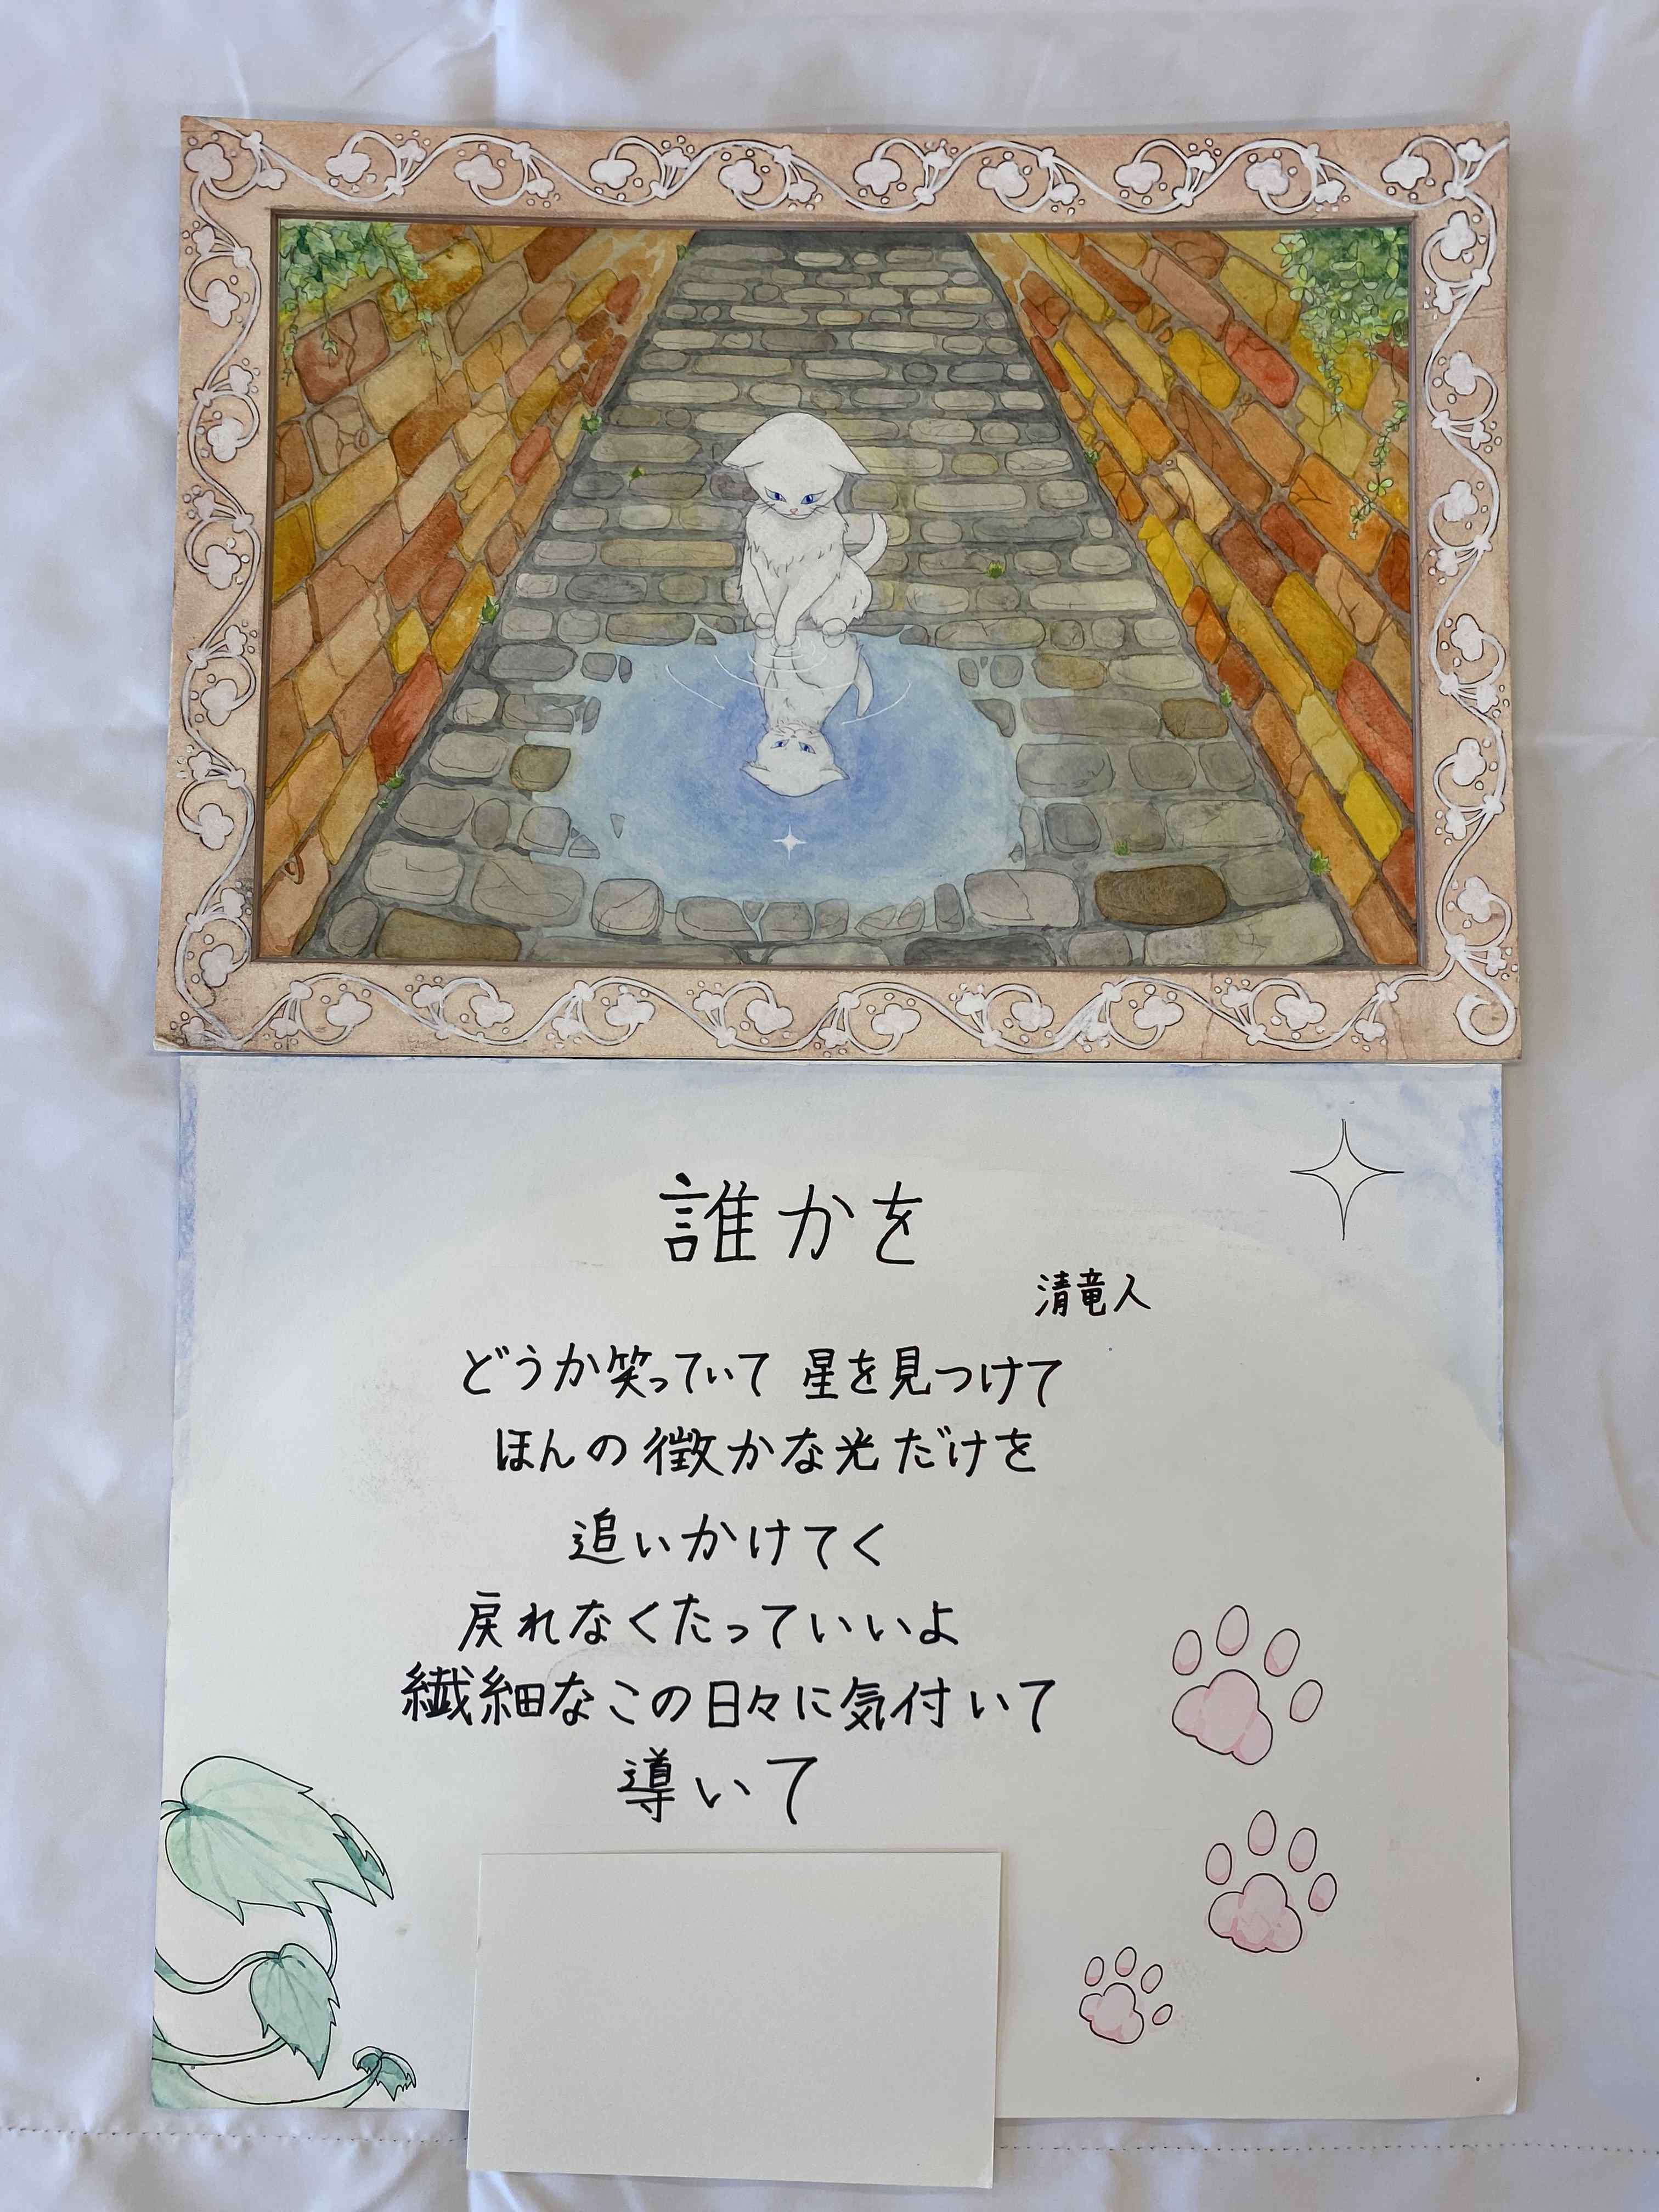 誰かを
清竜人
どうか笑っていて 星を見つけて
ほんの微かな光だけを
追いかけてく
戻れなくたっていいよ
繊細なこの日々に気付いて
導いて